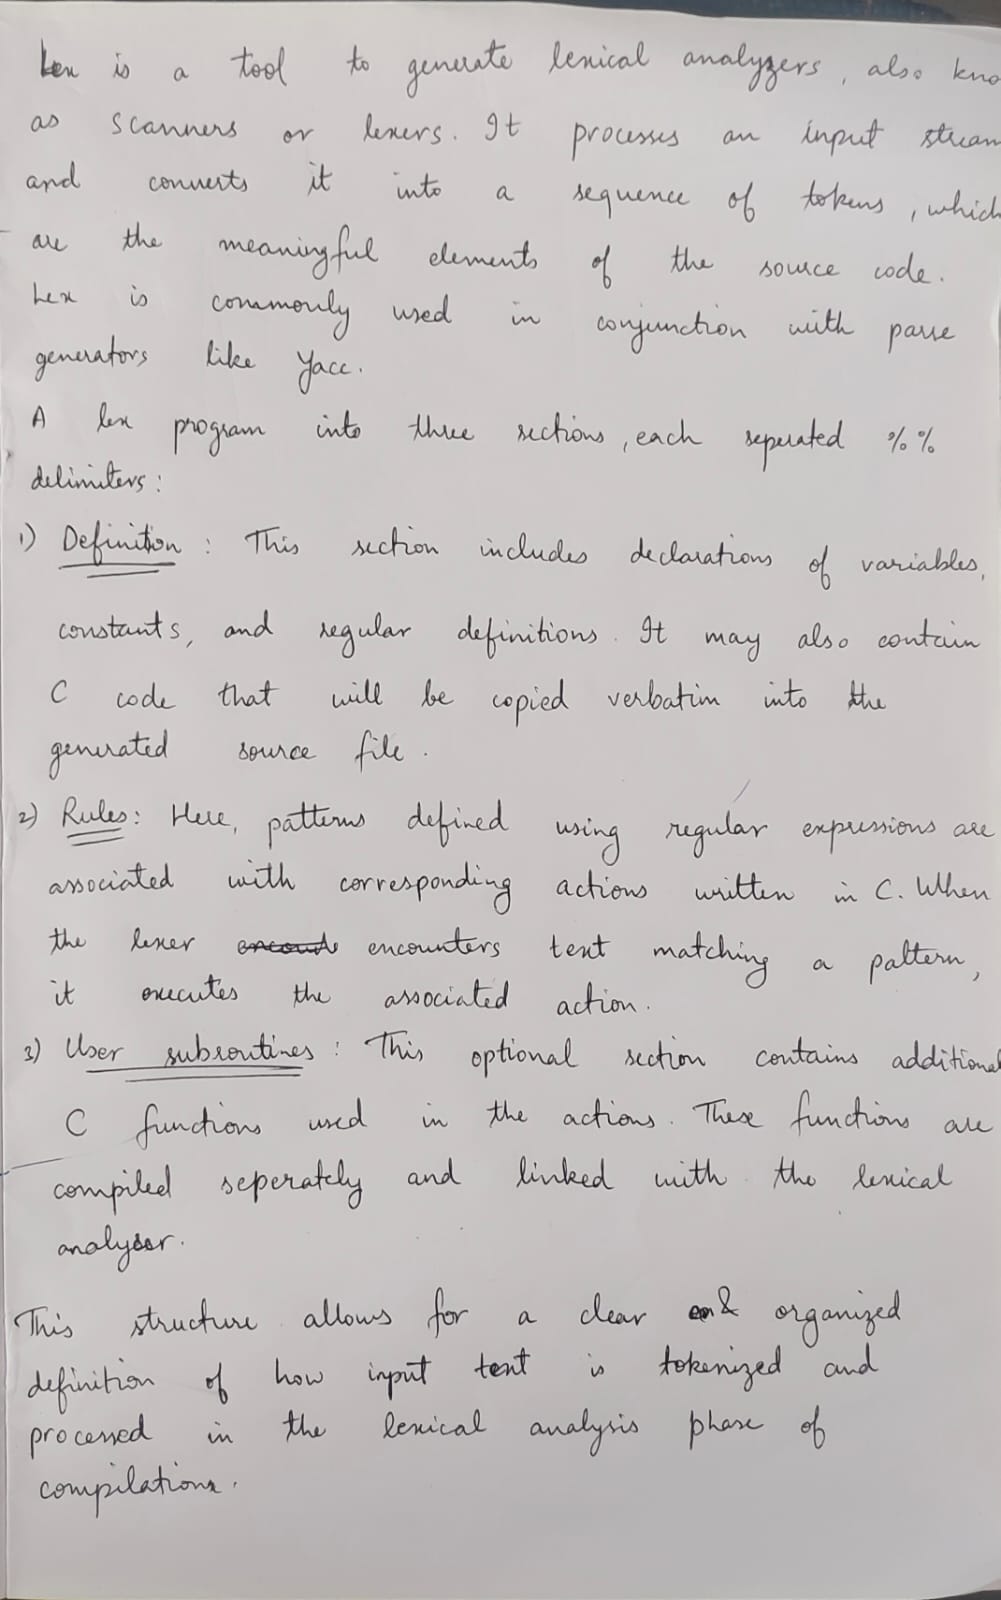 Lex is a tool to generate lexical analyzers, also kno
as scanners or lexers. It processes an input stream
and converts it into a sequence of tokens, which
are the meaningful elements of the source code.
Lex is commonly used in conjunction with parse
generators like Yacc.
A lex program into three sections, each seperated %%
delimiters:
1) Definition: This section includes declarations of variables,
constants, and regular definitions. It may also contain
C code that will be copied verbatim into the
generated source file.
2) Rules: Here, patterns defined using regular expressions are
associated with corresponding actions written in C. When
the lexer encounters text matching a pattern,
it executes the associated action.
3) User subroutines: This optional section contains additional
C functions used in the actions. These functions are
compiled seperately and linked with the lexical
analyser.
This structure allows for a clear & organized
definition of how input text is tokenized and
processed in the lexical analysis phase of
compilation.